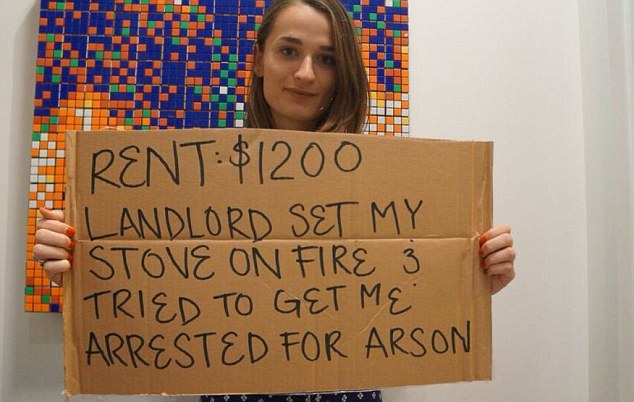 RENT: $1200
LANDLORD SET MY
STOVE ON FIRE &
TRIED TO GET ME
ARRESTED FOR ARSON